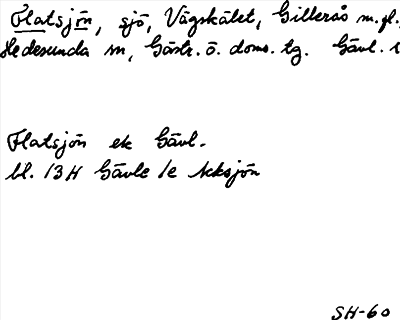 Flatsjön, sjö, Vägskälet, Gilleräs m.fl.,
Hedesunda sn, Gästr. ö. doms. tg. Gävl. l
Flatsjön ek Gävl.
bl. 13H Gävle 1e Acksjön
SH-60